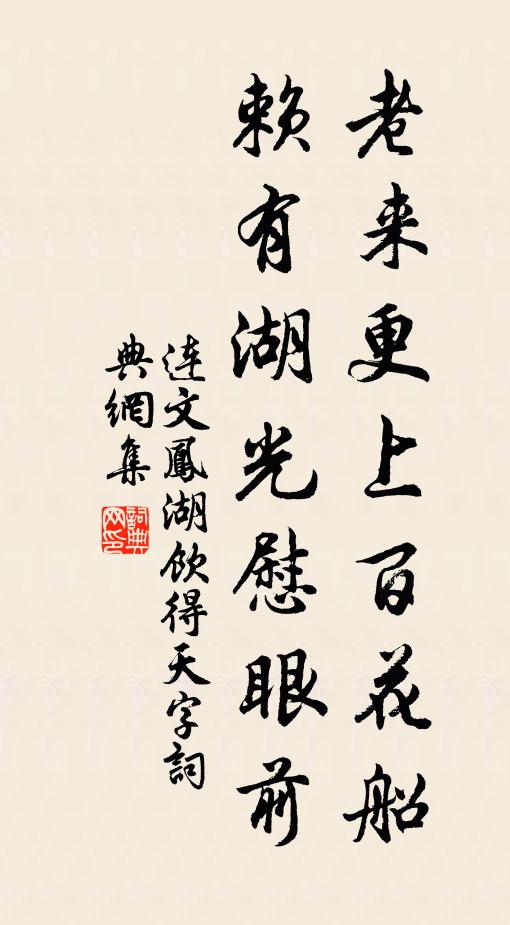 老来更上百花船
赖有湖光慰眼前
連文鳳湖飲得天字詞
典網集
詞典
网印